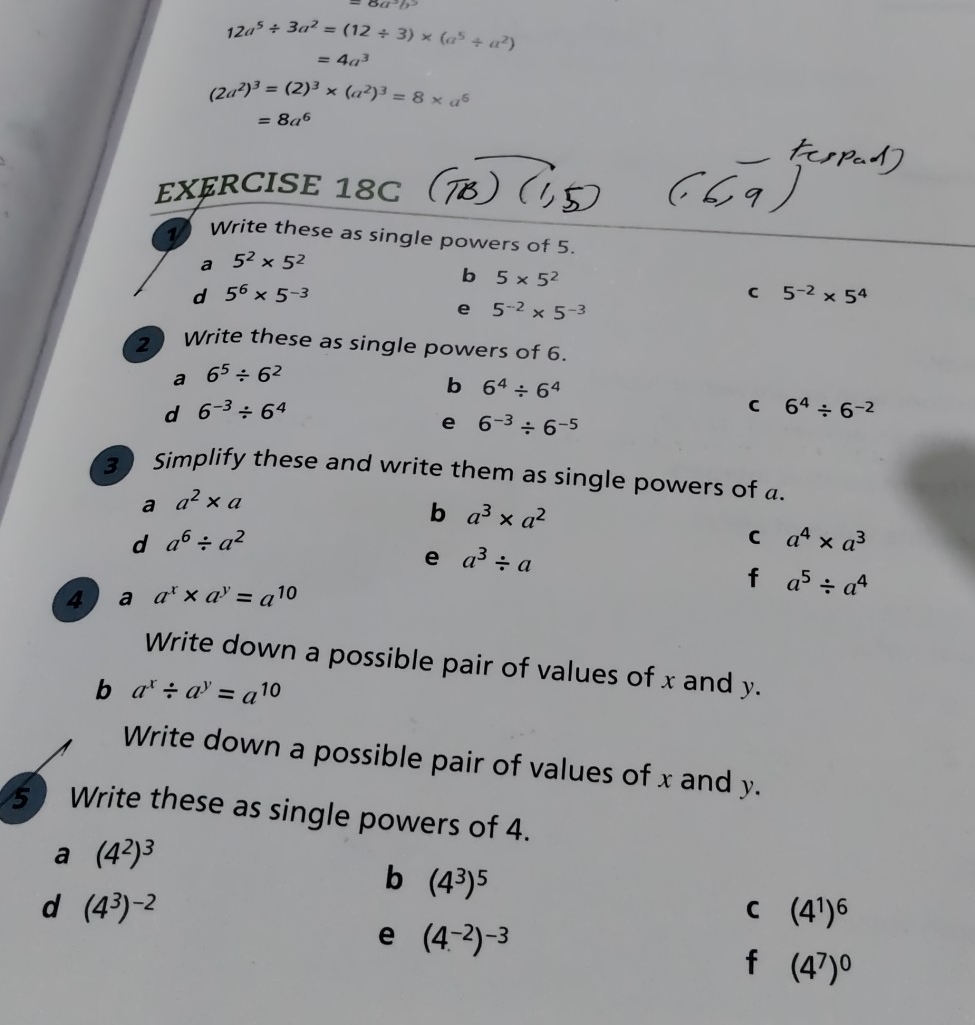 = 8a³b⁵
12a⁵ ÷ 3a² = (12 ÷ 3) × (a⁵ ÷ a²)
= 4a³
(2a²)³ = (2)³ × (a²)³ = 8 × a⁶
= 8a⁶
EXERCISE 18C (TB) (1,5) (6,9)
1 Write these as single powers of 5.
a 5² × 5² b 5 × 5² c 5⁻² × 5⁴
d 5⁶ × 5⁻³ e 5⁻² × 5⁻³
2 Write these as single powers of 6.
a 6⁵ ÷ 6² b 6⁴ ÷ 6⁴ c 6⁴ ÷ 6⁻²
d 6⁻³ ÷ 6⁴ e 6⁻³ ÷ 6⁻⁵
3 Simplify these and write them as single powers of a.
a a² × a b a³ × a² c a⁴ × a³
d a⁶ ÷ a² e a³ ÷ a f a⁵ ÷ a⁴
4 a aˣ × aʸ = a¹⁰
Write down a possible pair of values of x and y.
b aˣ ÷ aʸ = a¹⁰
Write down a possible pair of values of x and y.
5 Write these as single powers of 4.
a (4²)³ b (4³)⁵ c (4¹)⁶
d (4³)⁻² e (4⁻²)⁻³ f (4⁷)⁰